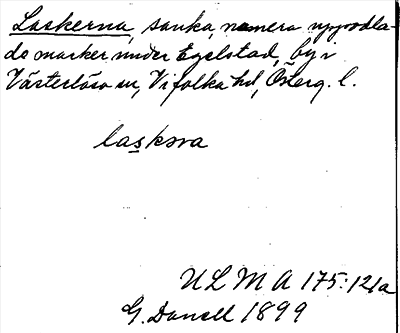 Laskerna, sanka, numera uppodla-
de marker under Egelstad, by i
Västerlösa sn, Vifolka hd, Österg. l.
laskəra
ULMA 175:121a
G. Danell 1899